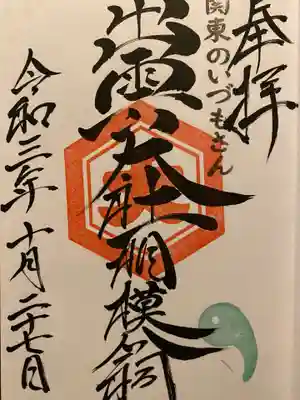 奉拝
関東のいづもさん
出雲大社相模分祠
令和三年十月二十七日